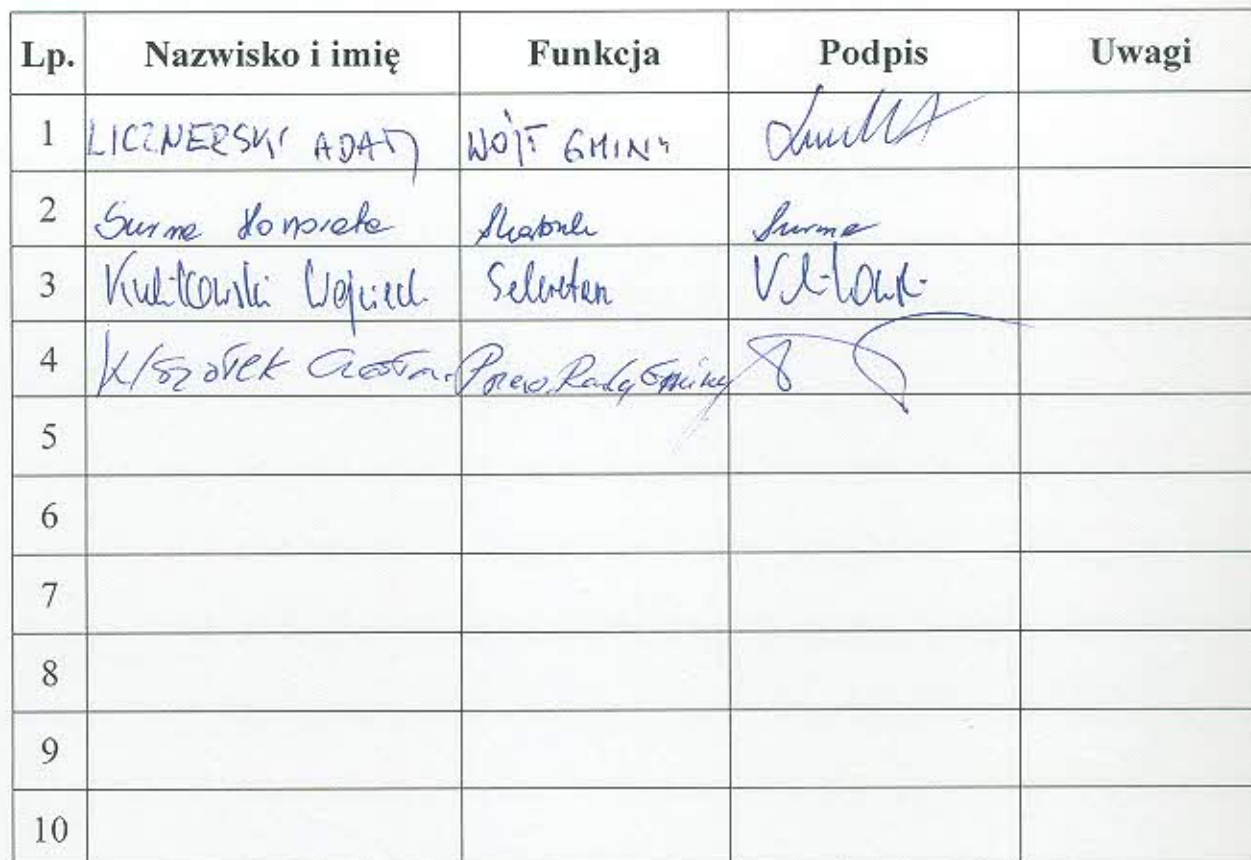 Lp. Nazwisko i imię Funkcja Podpis Uwagi
1 LICZNERSKI ADAM WÓJT GMINY
2 Surma Honorata Skarbnik Surma
3 Kulitkowski Wojciech Sekretarz
4 Prew. Rady Gminy
5
6
7
8
9
10